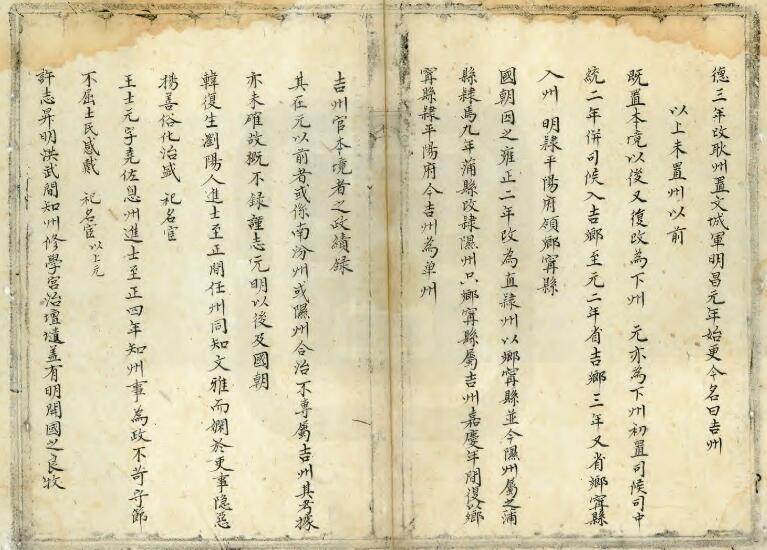 德三年改耿州置文城軍明昌元年始更今名曰吉州
以上未置州以前
既置本境以後又復改為下州 元亦為下州初置司候司中
統二年併司候入吉鄉至元二年省吉鄉三年又省鄉寗縣
入州 明隸平陽府領鄉寗縣
國朝因之雍正二年改為直隸州以鄉寗縣並今隰州屬之蒲
縣隸焉九年蒲縣改隸隰州只鄉寗縣屬吉州嘉慶年間復以鄉
寗縣隸平陽府今吉州為單州
吉州官本境者之政績録
其在元以前者或係南汾州或隰州合治不專屬吉州其考據
亦未確故概不録謹志元明以後及國朝
韓復生瀏陽人進士至正間任州同知文雅而嫻於吏事隐惡
揚善俗化治盛 祀名宦
王士元字堯佐恩州進士至正四年知州事為政不苛守節
不屈士民感戴 祀名宦以上元
許志昇明洪武間知州修學宮治壇壝盖有明開國之良牧